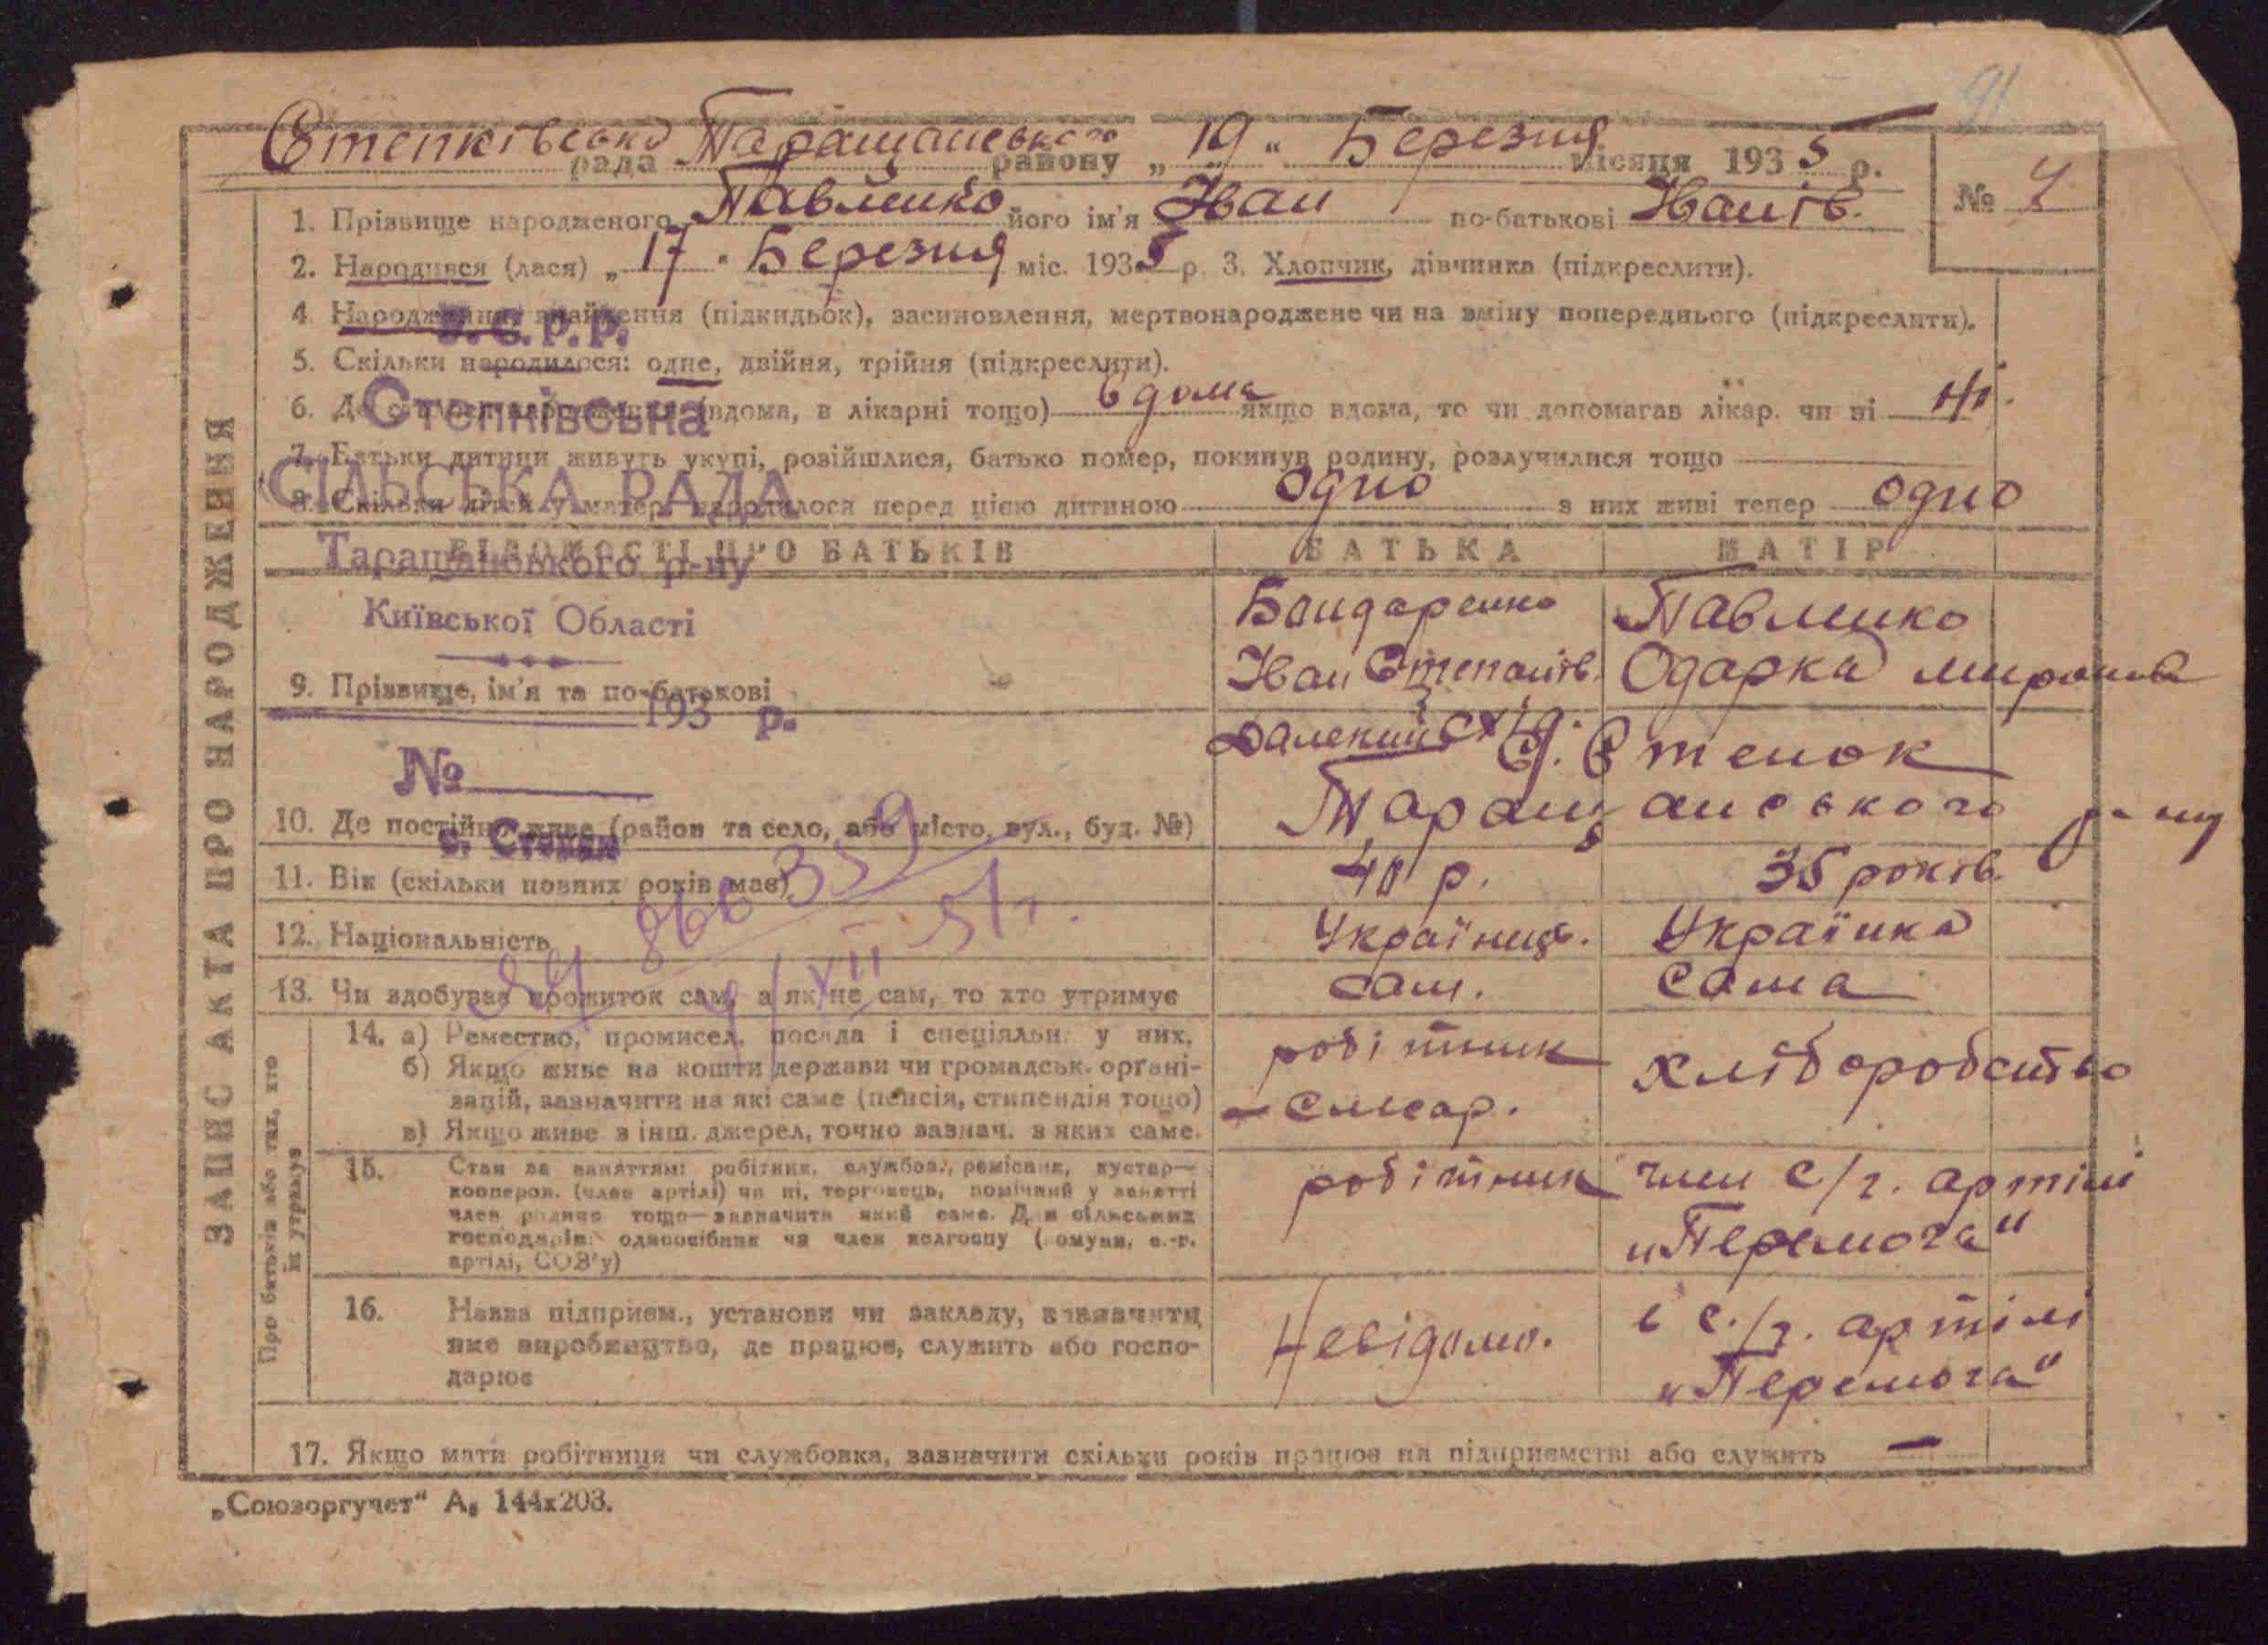 91
Степківська рада Таращанського району „ 19 “ Березня місяця 1935 р.
№ 7
1. Прізвище народженого Павленко його ім'я Іван по-батькові Іванів.
2. Народився (лася) „ 17 “ Березня міс. 1935 р. 3. Хлопчик, дівчинка (підкреслити).
4 Народження, знайдення (підкидьок), засиновлення, мертвонароджене чи на зміну попереднього (підкреслити).
У. С. Р. Р.
5. Скільки народилося: одне, двійня, трійня (підкреслити).
6. Де сталося народження (вдома, в лікарні тощо) вдома якщо вдома, то чи допомагав лікар. чи ні ні.
Степківська
7. Батьки дитини живуть укупі, розійшлися, батько помер, покинув родину, розлучилися тощо
СІЛЬСЬКА РАДА
8. Скільки дітей у матері народилося перед цією дитиною одно з них живі тепер одно
ВІДОМОСТІ ПРО БАТЬКІВ БАТЬКА МАТІР
Таращанського р-ну
Київської Області
9. Прізвище, ім'я та по-батькові
Бондаренко Іван Степанів.
Павленко Одарка миронівна
193 р.
№
Далекий схід.
10. Де постійно живе (район та село, або місто, вул., буд. №)
С. Степок
Таращанського р-ну
с. Степок
11. Вік (скільки повних років має) 40 р. 35 років.
12. Національність Українець. Українка
13. Чи здобував прожиток сам, а як не сам, то хто утримує сам. сама
866359
9/XII 51 г.
14. а) Ремество, промисел, посада і спеціяльн. у них.
б) Якщо живе на кошти держави чи громадськ. орґані-
зацій, зазначити на які саме (пенсія, стипендія тощо)
в) Якщо живе з інш. джерел, точно зазнач. з яких саме.
робітник
– слюсар.
хліборобство
15. Стан за заняттям: робітник, службов., ремісник, кустар—
коопером. (член артілі) чи ні, торговець, помічний у занятті
член родини тощо—зазначити який саме. Для сільських
господарів: одноосібник чи член колгоспу (комуни, с.-г.
артілі, СОЗ'у)
робітник
член с/г. артілі
„Перемога“
16. Назва підприєм., установи чи закладу, зазначити
яке виробництво, де працює, служить або госпо-
дарює
Невідомо.
в с./г. артілі
„Перемога“
17. Якщо мати робітниця чи службовка, зазначити скільки років працює на підприємстві або служить —
ЗАПИС АКТА ПРО НАРОДЖЕННЯ
Про батьків або тих, хто
їх утримує
„Союзоргучет“ А₅ 144x203.